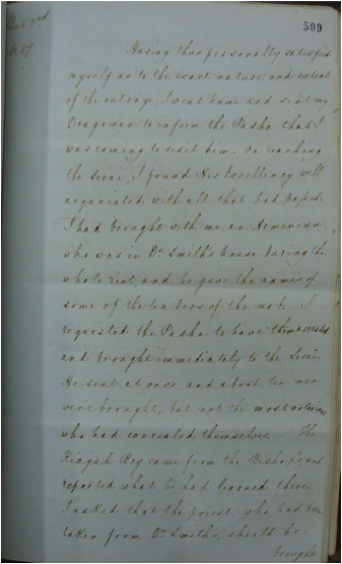 509
Having thus personally satisfied
myself as to the exact nature and extent
of the outrage, I went home and sent my
Dragoman to inform the Pasha that I
was coming to visit him. On reaching
the Serai, I found His Excellency well
acquainted with all that had passed.
I had brought with me an Armenian
who was in Dr. Smith's house during the
whole riot, and he gave the names of
some of the leaders of the mob. I
requested the Pasha to have them arrested
and brought immediately to the Serai.
He sent at once, and about ten men
were brought, but not the most notorious
who had concealed themselves. The
Kiayah Bey came from the Bishop's, and
reported what he had learned there.
I asked that the priest, who had been
taken from Dr. Smith's, should be
brought